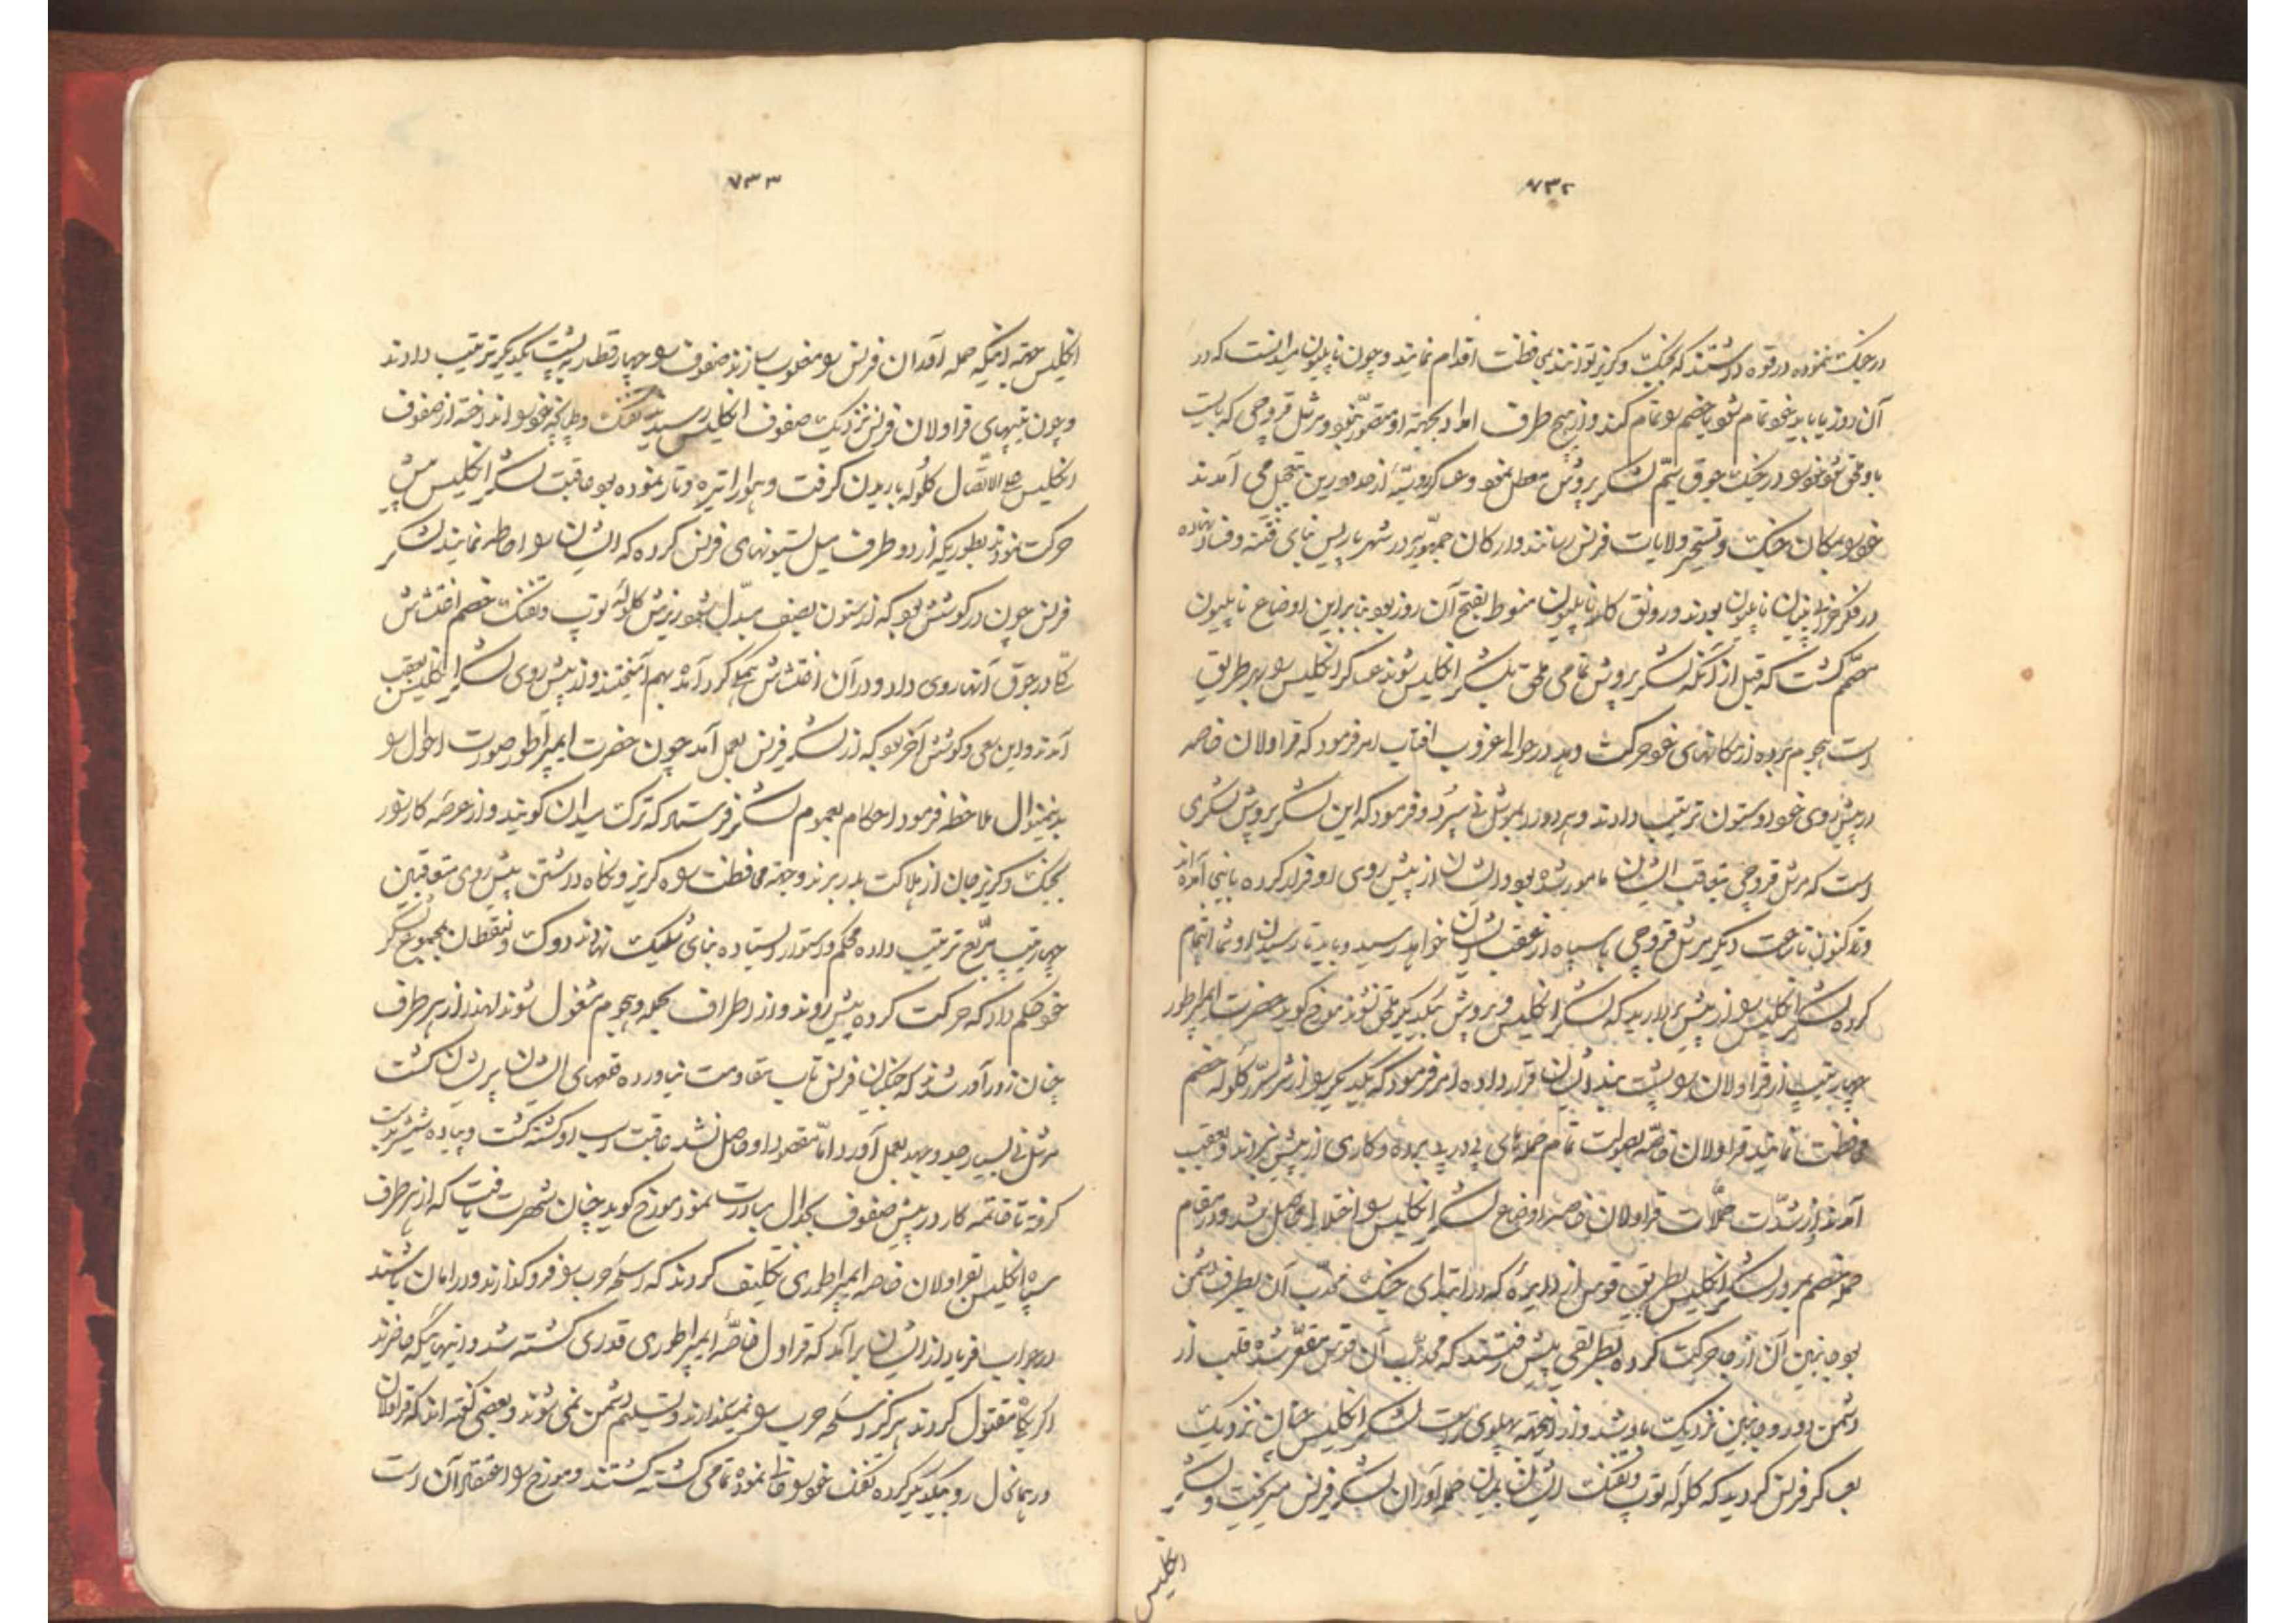 ۷۳۲
در جنگ ننموده در قوه داشتند که بجنگ و گریز توانند بمحافظت اقدام نمایند و چون ناپلیون میدانست که در
آن روز یا باید خود تمام شود یا خصم را تمام کند و از هیچ طرف امداد بجهته او مقصور نبود و مرشل قروچی که بایست
باو ملحق شود خود را در جنگ جوق سیّم لشکر پروش معطل نمود و عساکر روسیّه از حدود رین بتعجیل می آمدند
خود را بمکان جنگ و تسخیر ولایات فرنس رسانند و ارکان جمهوریّه در شهر پاریس بنای فتنه و فساد نهاده
در فکر خرابی بنیان ناپلیون بودند و رونق کار ناپلیون منوط بفتح آن روز بود بنابراین اوضاع ناپلیون
مصمّم گشت که قبل از آنکه لشکر پروش تمامی ملحق بلشکر انگلیس شوند عساکر انگلیس را بهر طریق
است هجوم برده از مکانهای خود حرکت دهد در حوالی غروب آفتاب امر فرمود که قراولان خاصه
در پیش روی خود دو ستون ترتیب دادند و هر دو را بمرشل نی سپرد و فرمود که این لشکر پروش لشکری
است که مرشل قروچی بتعاقب ایشان مامور شده بود و ایشان از پیش روی او فرار کرده باینجا آمده اند
و تا کنون تا ساعت دیگر مرشل قروچی با سپاه از عقب ایشان خواهد رسید و باید تا رسیدن او شما اهتمام
کرده لشکر انگلیس را از پیش بردارید که لشکر انگلیس و پروش بیکدیگر ملحق نشوند مورخ گوید حضرت ایمپراطور
چهار تیپ از قراولان را پشت بند ایشان قرار داده امر فرمود که یکدیگر را از شر گلوله خصم
محافظت نمایند قراولان خاصّه بصولت تمام حمله های پی در پی برده و کاری از پیش نبردند و بعقب
آمدند و از شدّت حملات قراولان خاصه در اوضاع لشکر انگلیس اختلالی حاصل شد و در مقام
حمله خصم برور لشکر انگلیس بطریق قوس از دایره که در ابتدای جنگ محدّب آن بطرف دشمن
بود جانبین آن از جا حرکت کرده بطریقی پیش رفتند که محدّب آن قوس مقعّر شده قلب از
دشمن دور و جانبین نزدیک باو شد و از اینجهته پهلوی راست لشکر انگلیس چنان نزدیک
بعساکر فرنس گردید که گلوله توپ و تفنگ ایشان بمیان حمله آوران لشکر فرنس میریخت و لشکر
انگلیس
۷۳۳
انگلیس جهته اینکه حمله آوران فرنس را مغلوب سازند صفوف را چهار قطار به پشت یکدیگر ترتیب دادند
و چون تیپهای قراولان فرنس نزدیک صفوف انگلیس رسید تفنگ و طپانچه خود را انداخته از صفوف
انگلیس علی الاتصال گلوله باریدن گرفت و هوا را تیره و تار نموده بود عاقبت لشکر انگلیس پیش
حرکت نمودند بطوریکه از دو طرف میل بستونهای فرنس کرده که ایشان را احاطه نمایند لشکر
فرنس چون در کوشش بود که از ستون بصف مبدّل شود ریزش گلوله توپ و تفنگ خصم اغتشاش
کلی در جوق آنها روی داد و در آن اغتشاش یکجا گرد آمده بهم آمیختند و از پیش روی لشکر انگلیس بعقب
آمدند و این سعی و کوشش آخر بود که از لشکر فرنس بعمل آمد چون حضرت ایمپراطور صورت احوال را
بدینمنوال ملاحظه فرمود احکام بعموم لشکر فرستاد که ترک میدان گویند و از عرصه کارزار
بجنگ و گریز جان از هلاکت بدر برند و جهته محافظت راه گریز و نگاه داشتن پیش روی متعاقبین
چهار تیپ مربّع ترتیب داده محکم و استوار ایستاده بنای شلیک نهادند دوک ولنقطان بمجموع لشکر
خود حکم داد که حرکت کرده پیش روند و از اطراف بحمله و هجوم مشغول شوند لهذا از هر طرف
چنان زورآور شدند که جنگیان فرنس تاب مقاومت نیاورده صفهای ایشان پریشان گشت
مرشل نی بسیار جد و جهد بعمل آورد امّا مقصود او حاصل نشد عاقبت اسب او کشته گشت و پیاده شمشیر بدست
گرفته تا خاتمه کار در پیش صفوف بجدال مبادرت نمود مورخ گوید چنان شهرت یافت که از هر طرف
سپاه انگلیس بقراولان خاصه ایمپراطوری تکلیف کردند که اسلحه حرب را فرو گذارند و در امان باشند
در جواب فریاد از ایشان برآمد که قراول خاصّه ایمپراطوری قدری کشته شد و اینهائیکه حاضرند
اگر یکجا مقتول گردند هرگز اسلحه حرب را نمیگذارند و تسلیم دشمن نمی شوند و بعضی گفته اند که قراولان
در همان حال رو بیکدیگر کرده تفنگ خود را خالی نموده تمامی کشته گشتند و مورخ را اعتقاد آن است